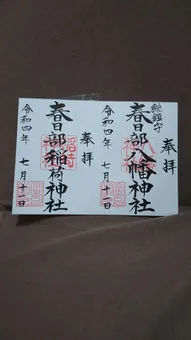 総鎮守
奉拝
春日部八幡神社
令和四年七月十一日
奉拝
春日部稲荷神社
令和四年七月十一日